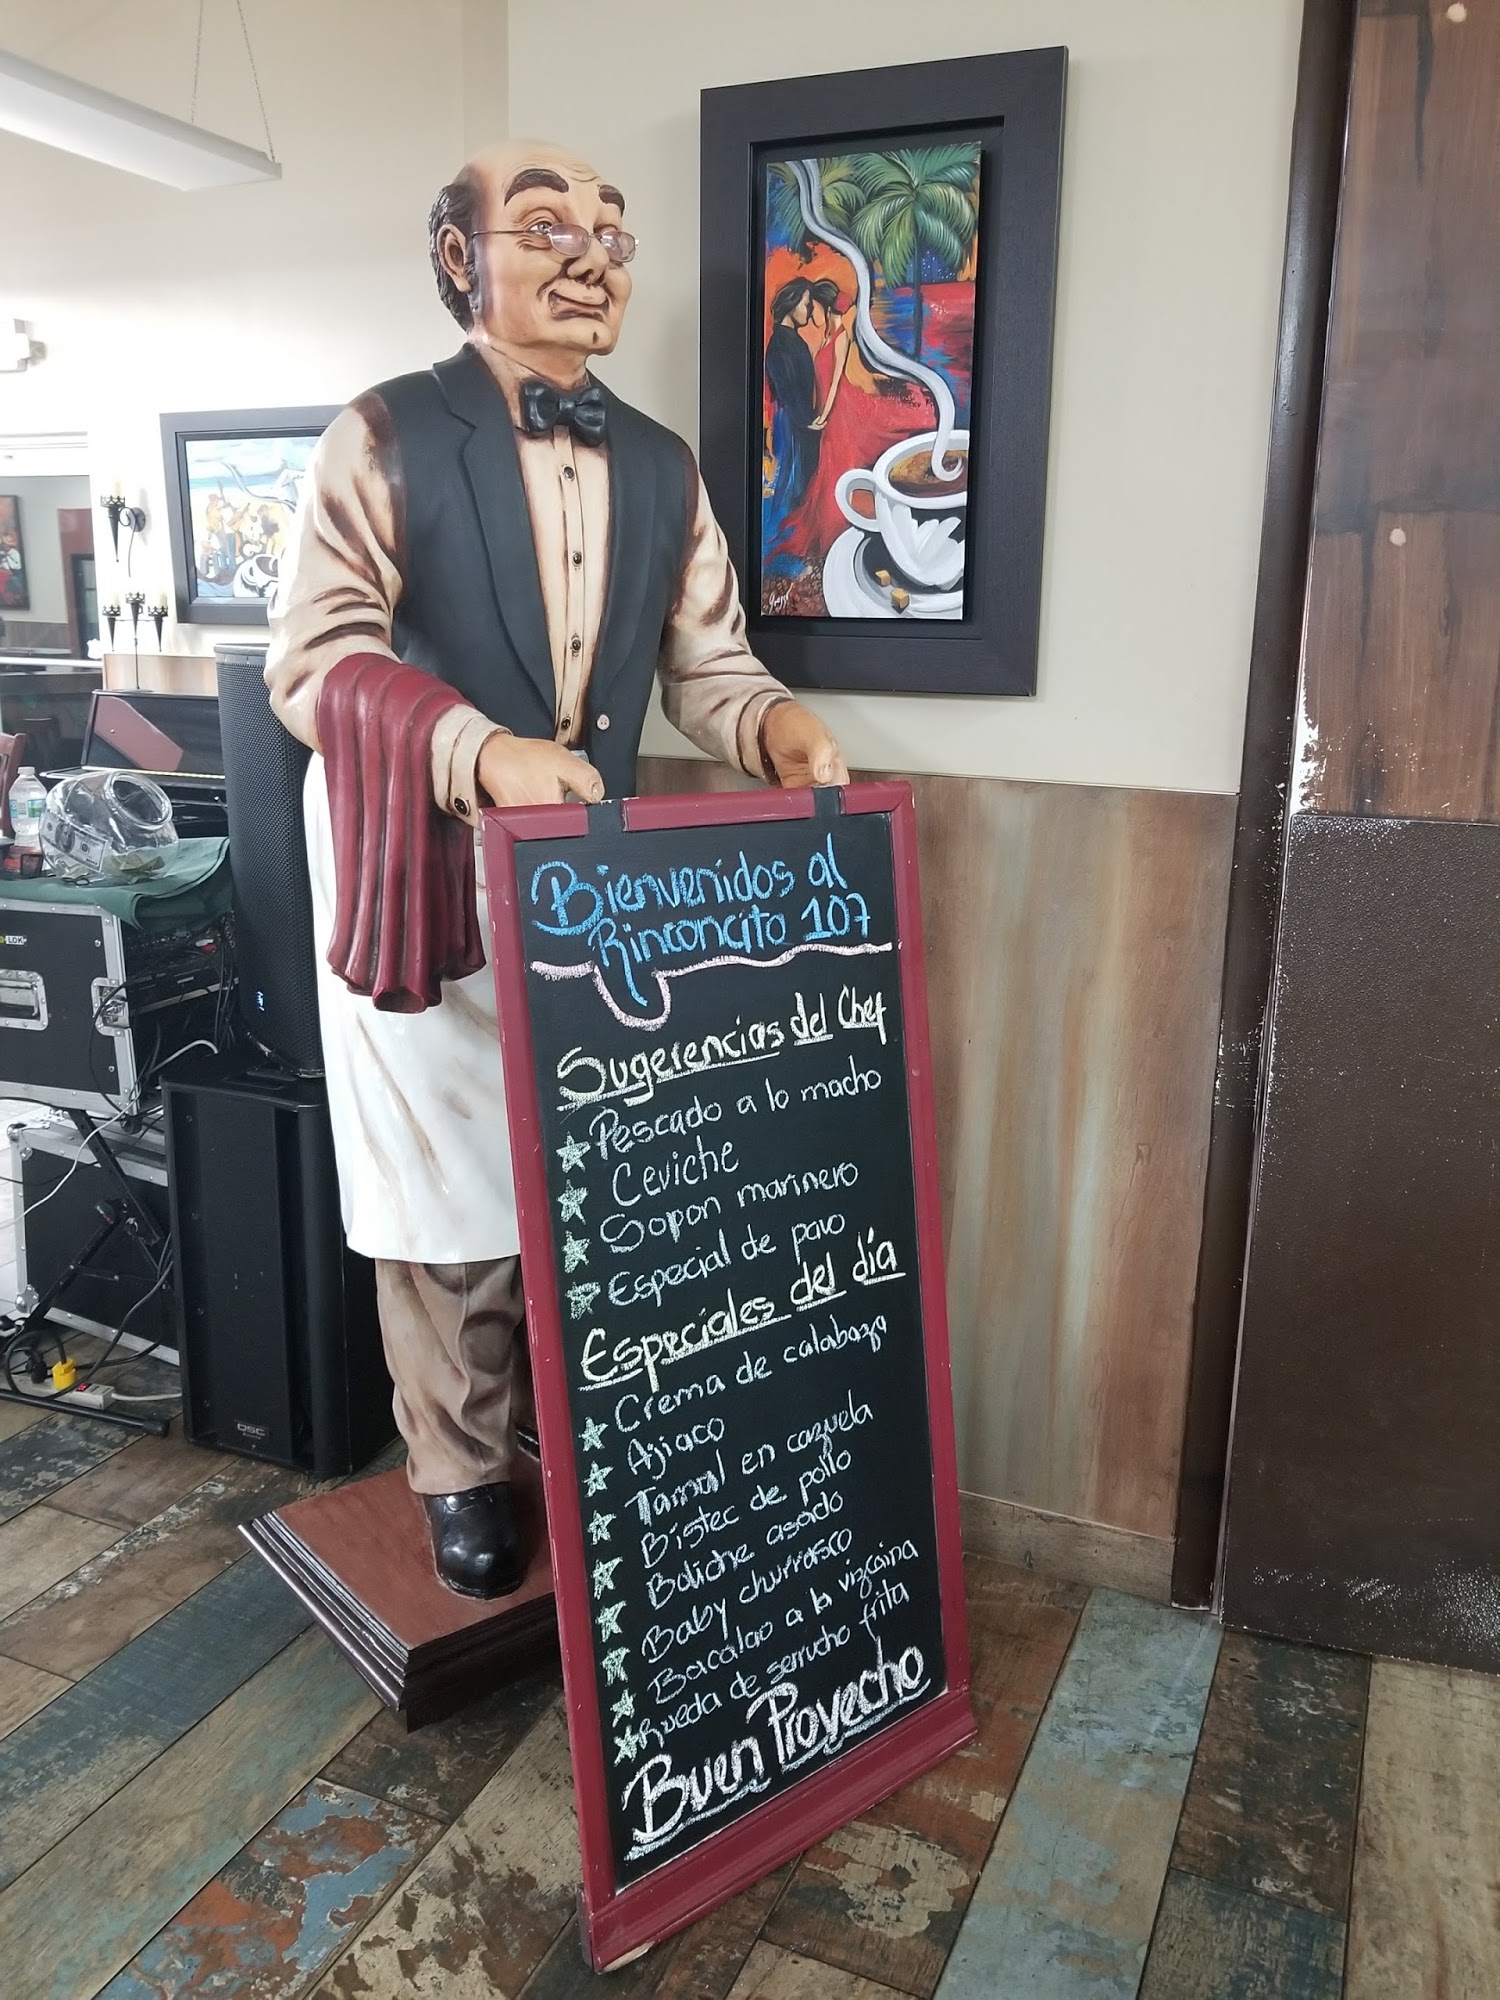 Bienvenidos al
Rinconcito 107
Sugerencias del Chef
Pescado a lo macho
Ceviche
Sopon marinero
Especial de pavo
Especiales del día
Crema de calabaza
Ajiaco
Tamal en cazuela
Bistec de pollo
Boliche asado
Baby churrasco
Bacalao a la vizcaina
Rueda de serrucho frita
Buen Provecho
QSC